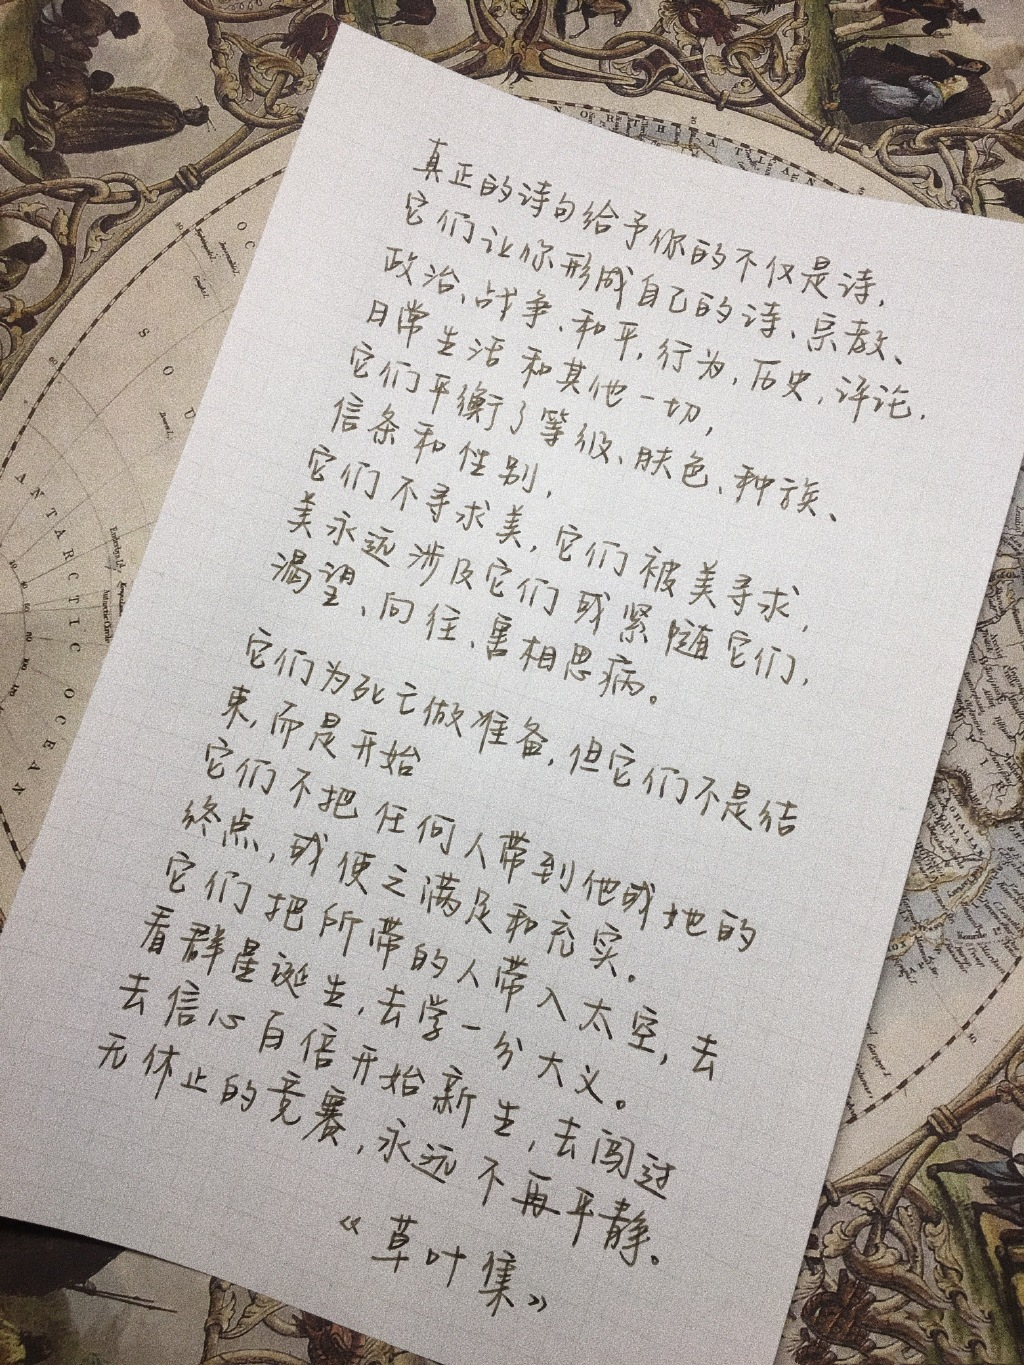 真正的诗句给予你的不仅是诗,
它们让你形成自己的诗、宗教、
政治、战争、和平,行为,历史,评论,
日常生活和其他一切,
它们平衡了等级、肤色、种族、
信条和性别,
它们不寻求美,它们被美寻求,
美永远涉及它们或紧随它们,
渴望、向往、害相思病。
它们为死亡做准备,但它们不是结
束,而是开始
它们不把任何人带到他或她的
终点,或使之满足和充实。
它们把所带的人带入太空,去
看群星诞生,去学一分大义。
去信心百倍开始新生,去闯过
无休止的竞赛,永远不再平静。
《草叶集》
ANTARCTIC OCEAN